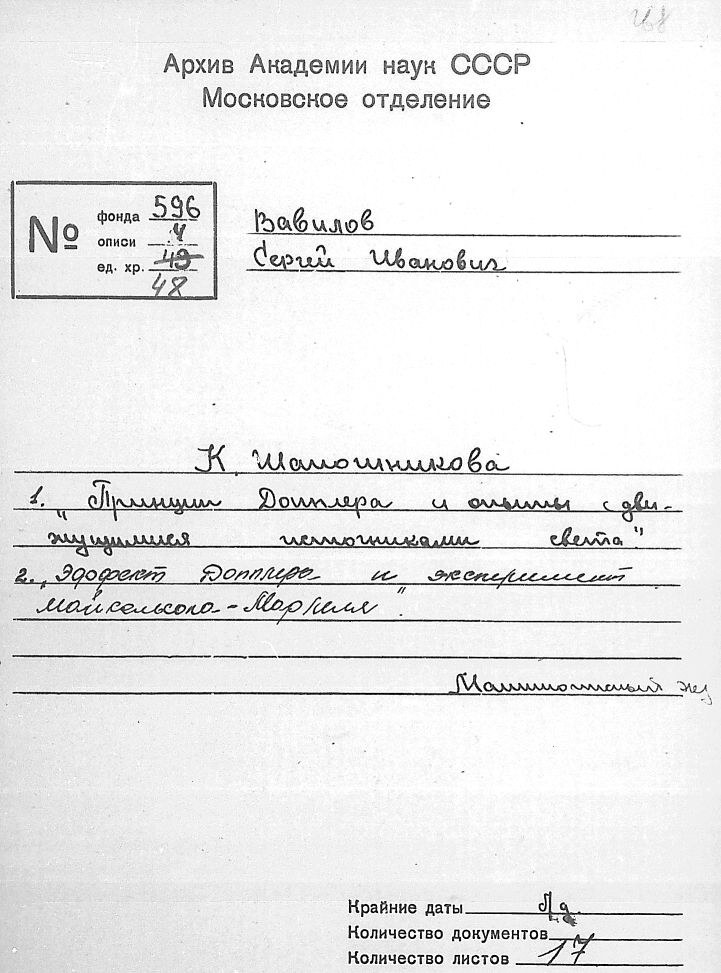 Архив Академии наук СССР
Московское отделение
№
фонда 596
описи 4
ед. хр. 49
48
Вавилов
Сергей Иванович
К Шапошникова
1. "Принцип Допплера и опыты с дви-
жущимися источниками света"
2. "Эффект Допплера и эксперимент
Майкельсона-Морлея".
Машинописный экз
Крайние даты
Количество документов
Количество листов 17